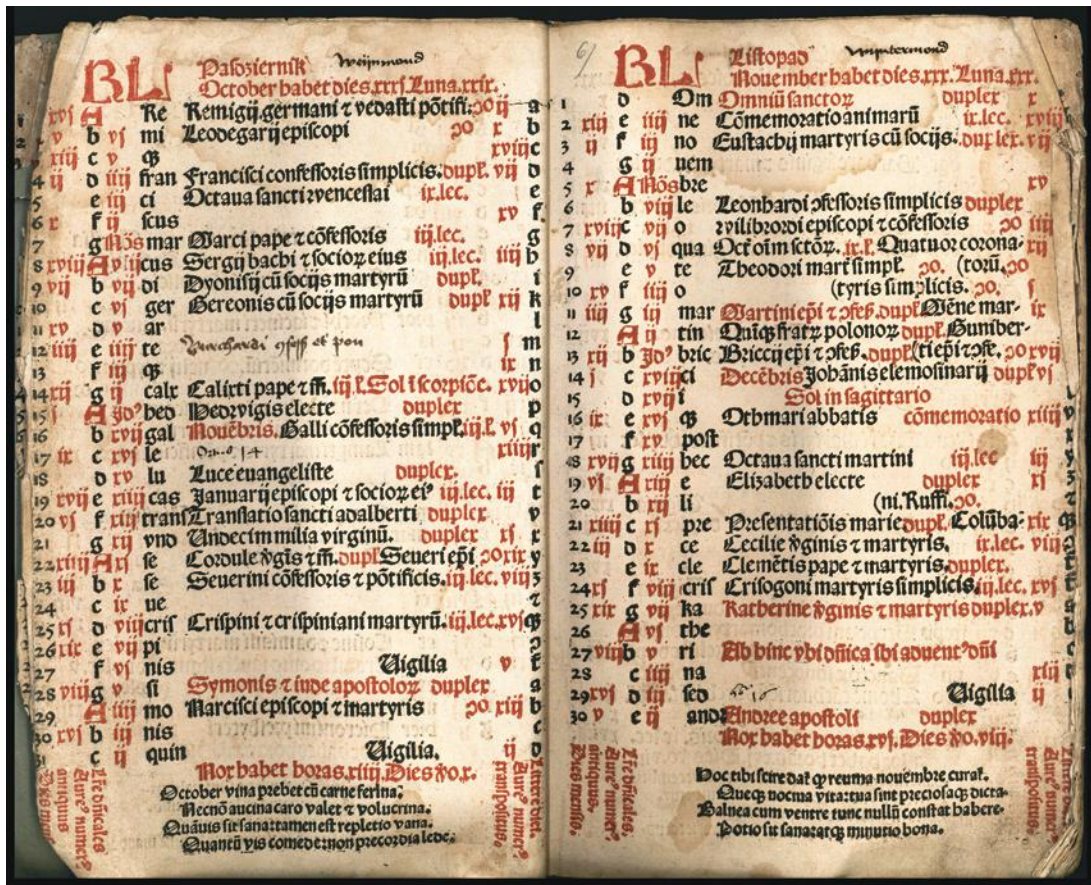 Weijnmond
KL Pasdziernik
October habet dies.xxxj.Luna.xxix.
xvj A Re Remigij.germani ⁊ vedasti põtifi: ꝫo ij a
v b vj mi Leodegarij episcopi ꝫo x b
xiij c v qꝫ xviij c
4 ij d iiij fran Francisci confessoris simplicis.dupl. vij d
5 e iij ci Octaua sancti vencessai ix.lec. e
6 x f ij scus xv f
7 g Nõs mar Marci pape ⁊ cõfessoris iij.lec. g
8 xviij A viij cus Sergij bachi ⁊ socioꝝ eius iij.lec. iiij h
9 vij b vij di Dyonisij cũ socijs martyrũ dupl. i
10 c vj ger Gereonis cũ socijs martyrũ dupl xij k
11 xv d v ar l
12 iiij e iiij te Burchardi j m
13 f iij qꝫ ix n
14 xij g ij calx Calixti pape ⁊ m̃. iij.l. Sol ĩ scorpiõe. xvij o
15 j A Jd' hed Hedvigis electe duplex p
16 b xvij gal Nouẽbris. Galli cõfessoris simpl. iij.l. vj q
17 ix c xvj le xiiij r
18 d xv lu Luce euangeliste duplex. s
19 xvij e xiiij cas Januarij episcopi ⁊ socioꝝ ei' iij.lec. iij t
20 vj f xiij trans Translatio sancti adalberti duplex v
21 g xij vnd Undecim milia virginũ. duplex xj x
22 xiiij A xj se Cordule v̄gĩs ⁊ m̃. dupl Seueri ep̃i ꝫo xix y
23 iij b x se Seuerini cõfessoris ⁊ põtificis. iij.lec. viij z
24 c ix ue ⁊
25 xj d viij cris Crispini ⁊ crispiniani martyrũ. iij.lec. xvj
26 xix e vij pi
27 f vj nis Uigilia v
28 viij g v si Symonis ⁊ iude apostoloꝝ duplex a
29 A iiij mo Narcisci episcopi ⁊ martyris ꝫo xiij b
30 xvj b iij nis c
c ij quin Uigilia. ij d
Nox habet horas.xiiij.Dies v̄o.x.
October vina prebet cũ carne ferina:
Necnõ aucina caro valet ⁊ volucrina.
Quãuis sit sana: tamen est repletio vana.
Quantũ vis comede: non precordia lede:
Lr̃e dñicales
Aure' numer'
antiquus
Dies mensis
Littere dñicl.
Aure' numer'
transpositus.
61
Wijntermond
KL Listopad
Nouember habet dies.xxx.Luna.xxx.
1 d Om Omniũ sanctoꝝ duplex x
2 xiij e iiij ne Cõmemoratio animarũ ix.lec. xviij
3 ij f iij no Eustachij martyris cũ socijs.duplex. vij
4 g ij uem
5 x A Nõs bre xv
6 b viij le Leonhardi ꝯfessoris simplicis duplex
7 xviij c vij o vilibrordi episcopi ⁊ cõfessoris ꝫo iiij
8 vij d vj qua Oct̃ oĩm sctõꝝ. ix.l. Quatuor corona- xij
9 e v te Theodori mart̃ simpl. ꝫo. (torũ. ꝫo
10 xv f iiij o (tyris simplicis. ꝫo. j
11 iiij g iij mar Martini ep̃i ⁊ ꝯfes̃. dupl Mẽne mar- ix
12 A ij tin Quĩqꝫ fratꝝ polonoꝝ dupl. Guniber-
13 xij b Jd' bric Briccij ep̃i ⁊ ꝯfes̃. dupl (ti ep̃i ⁊ ꝯfe. ꝫo xvij
14 j c xviij ci Decẽbris Johãnis elemosinarij dupl vj
15 d xvij i Sol in sagittario
16 ix e xvj qꝫ Othmari abbatis cõmemoratio xiiij
17 f xv post
18 xvij g xiiij hec Octaua sancti martini iij.lec iij
19 vj A xiij e Elizabeth electe duplex xj
20 b xij li (ni. Ruffi. ꝫo.
21 xiiij c xj pre Presentatiõis marie dupl. Colũba- xix
22 iij d x ce Cecilie v̄ginis ⁊ martyris. ix.lec. viij
23 e ix cle Clemẽtis pape ⁊ martyris.duplex.
24 xj f viij cris Crisogoni martyris simplicis. iij.lec. xvj
25 xix g vij ka Katherine v̄ginis ⁊ martyris duplex. v
26 A vj the
27 viij b v ri Ab hinc vbi dñica ibi aduent' dñi
28 c iiij na xiij
29 xvj d iij sed Uigilia ij
30 v e ij andr Andree apostoli duplex
Nox habet horas.xvj.Dies v̄o.viij.
Hoc tibi scire dat̃ qꝫ reuma nouẽmbre curat̃.
Queqꝫ nociua vita: tua sint preciosaqꝫ dicta.
Balnea cum ventre tunc nullũ constat habere.
Potio sit sana: atqꝫ minutio bona.
Lr̃e dñicales.
Aure' numer'
antiquus.
Dies mensis.
Aure' numer'
transpositus.